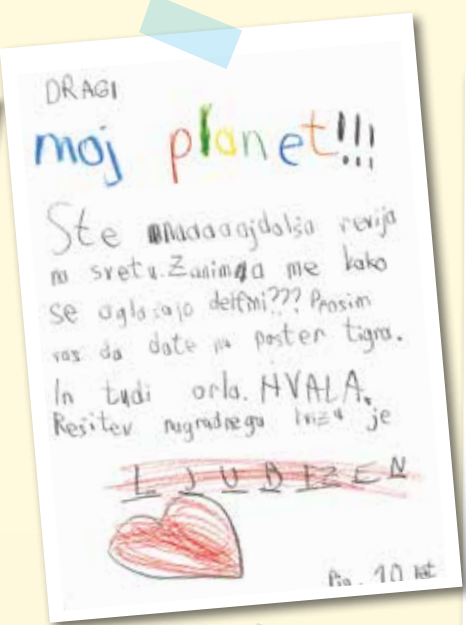 DRAGI
moj planet!!!
Ste revija
na svetu. Zanima me kako
se oglašajo delfini??? Prosim
vas da date na poster tigra.
In tudi orla. HVALA.
Rešitev nagradnega kviza je
LJUBEZEN
10 let